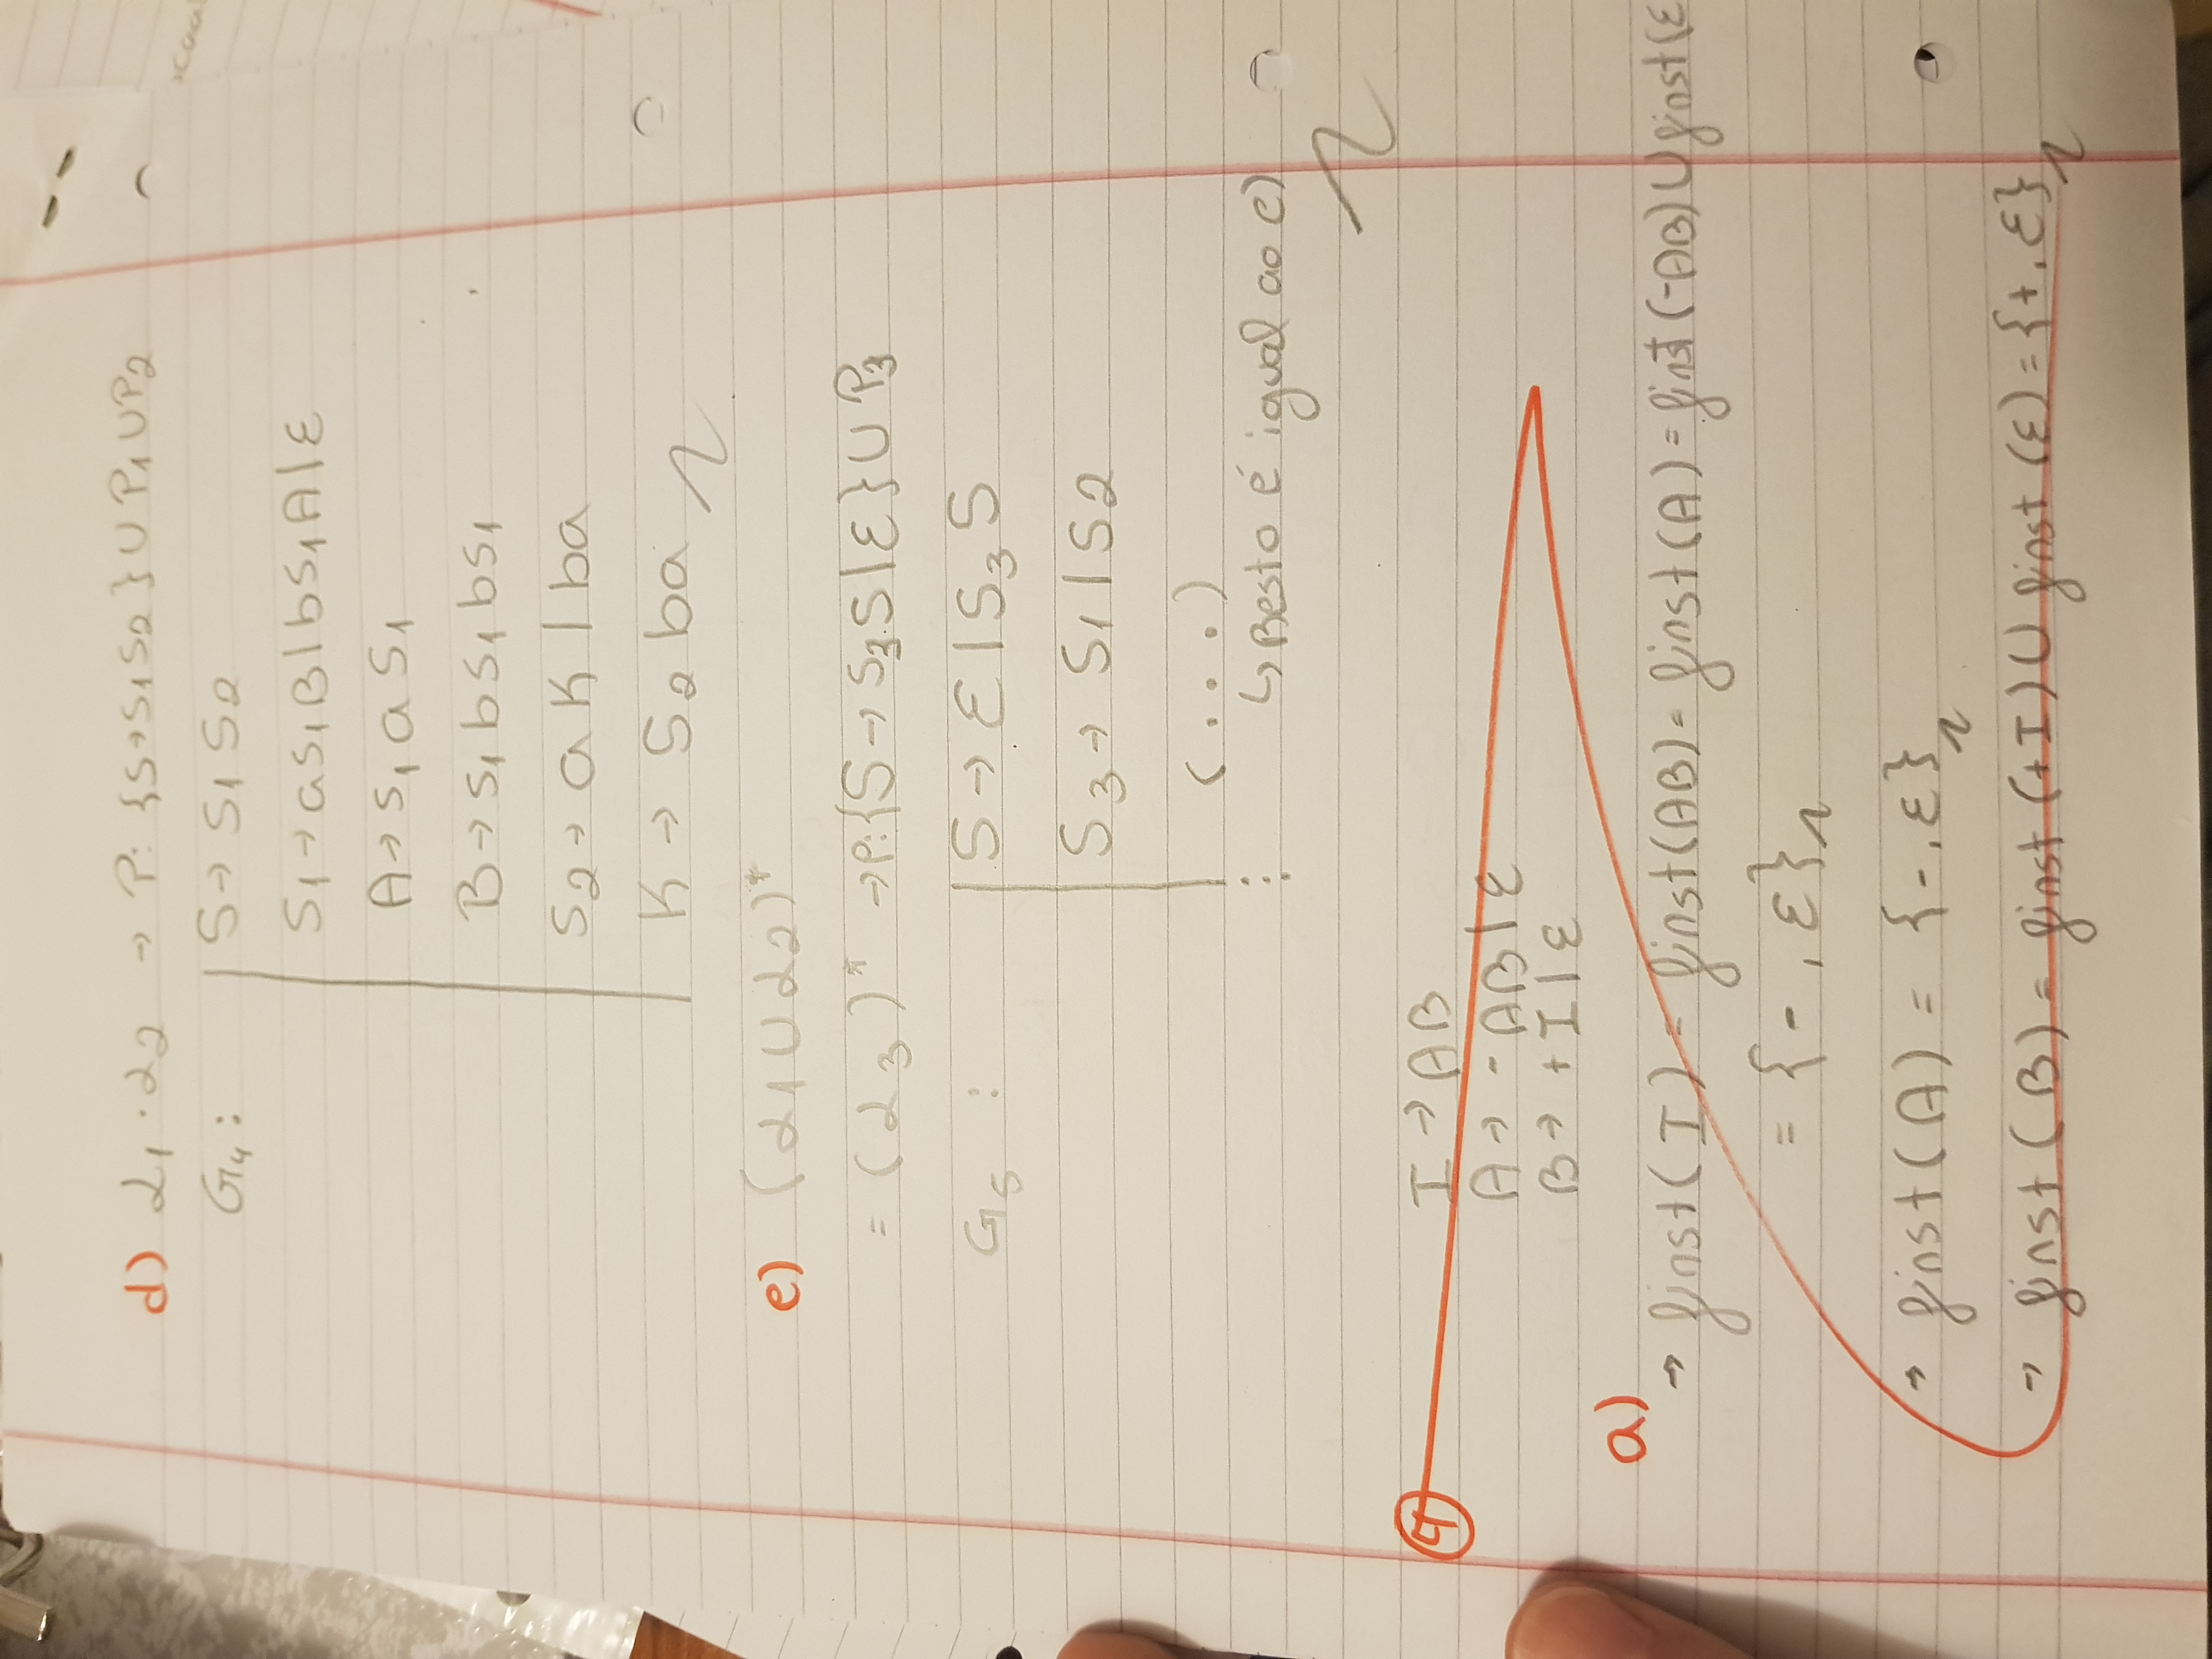 d) L₁ · L₂ → P: {S→S₁S₂} ∪ P₁ ∪ P₂
G₄: S → S₁ S₂
S₁ → aS₁B | bS₁A | ε
A → S₁ a S₁
B → S₁ b S₁ b S₁
S₂ → a K | ba
K → S₂ ba
e) (L₁ ∪ L₂)*
= (L₃)* → P: {S → S₃S | ε} ∪ P₃
G₅ : S → ε | S₃ S
S₃ → S₁ | S₂
(...)
⋮ ↳ Resto é igual ao c)
④ I → AB
A → -AB | ε
B → +I | ε
a)
→ first(I) = first(AB) = first(A) = first(-AB) ∪ first(ε
= {-, ε}
→ first(A) = {-, ε}
→ first(B) = first(+I) ∪ first(ε) = {+, ε}